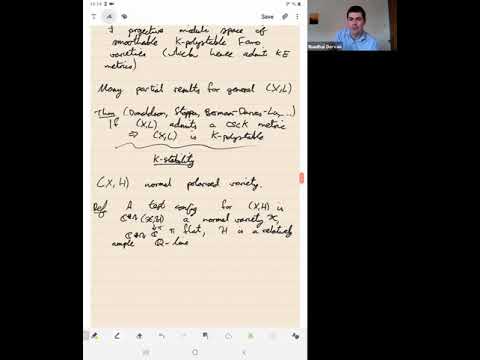 ∃ projective moduli space of
smoothable K-polystable Fano
varieties (which hence admit KE
metrics)
Many partial results for general (X,L)
Thm (Donaldson, Stoppa, Berman-Darvas-Lu, ...)
If (X,L) admits a cscK metric
⇒ (X,L) is K-polystable
K-stability
(X, H) normal polarised variety.
Def A test config for (X,H) is
a normal variety X,
π flat, H is a relatively
ample Q-line
Ruadhaí Dervan
Share